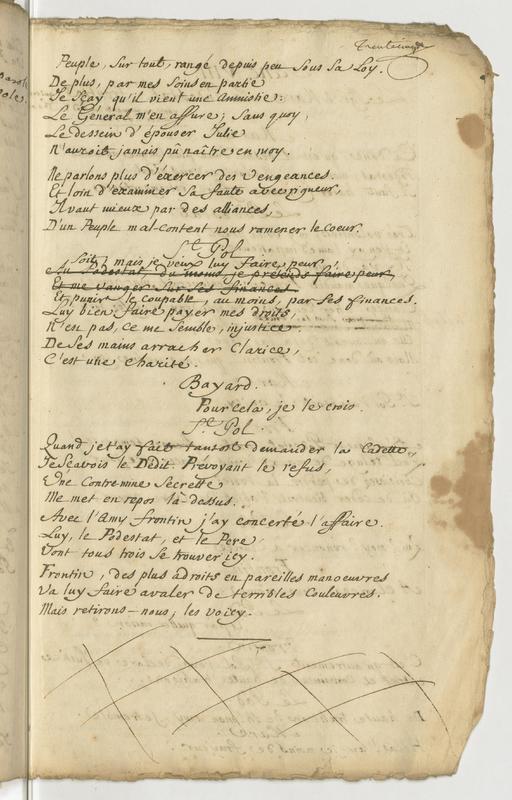 Trentecinq
Peuple, Sur tout, rangé depuis peu Sous Sa Loy.
De plus, par mes Soins en partie
Je Sçay qu'il vient une Amnistie:
Le Général m'en assure; Sans quoy,
Le dessein d'épouser Julie
N'auroit jamais pû naître en moy.
Ne parlons plus d'éxercer des Vengeances.
Et loin d'éxaminer Sa faute avec rigueur,
Il vaut mieux par des alliances,
D'un Peuple mal-content nous ramener le Coeur.
St. Pol
Soit; mais je veux luy faire peur,
Du Podestat, du moins, je prétends faire peur,
Et me vanger Sur Ses finances
Et punir le coupable, au moins, par Ses finances.
Luy bien faire payer mes droits,
N'en pas, ce me Semble, injustice.
De Ses mains arracher Clarice,
C'est une charité.
Bayard.
Pour cela, je le crois.
St. Pol.
Quand je t'ay fait tantost demander la Cadette,
Je Sçavois le Dédit. Prévoyant le refus,
Une Contremine Secrette
Me met en repos là-dessus.
Avec l'Amy frontin j'ay concerté l'affaire.
Luy, le Podestat, et le Pere
Vont tous trois Se trouver icy.
Frontin, des plus adroits en pareilles manoeuvres
Va luy faire avaler de terribles Couleuvres.
Mais retirons-nous; les voicy.